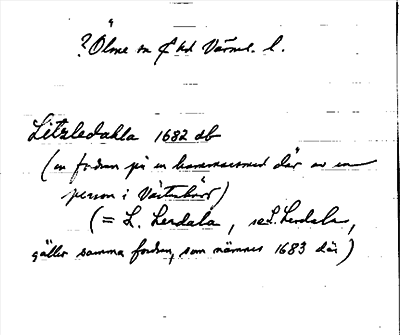 ? Ölme sn o hd Värml. l.
Litzledahla 1682 db
(en fordran på en hammarsmed där av en
person i Västanbäck)
(= L. Lerdala, se L. Lerdala,
gäller samma fordran, som nämnes 1683 där)